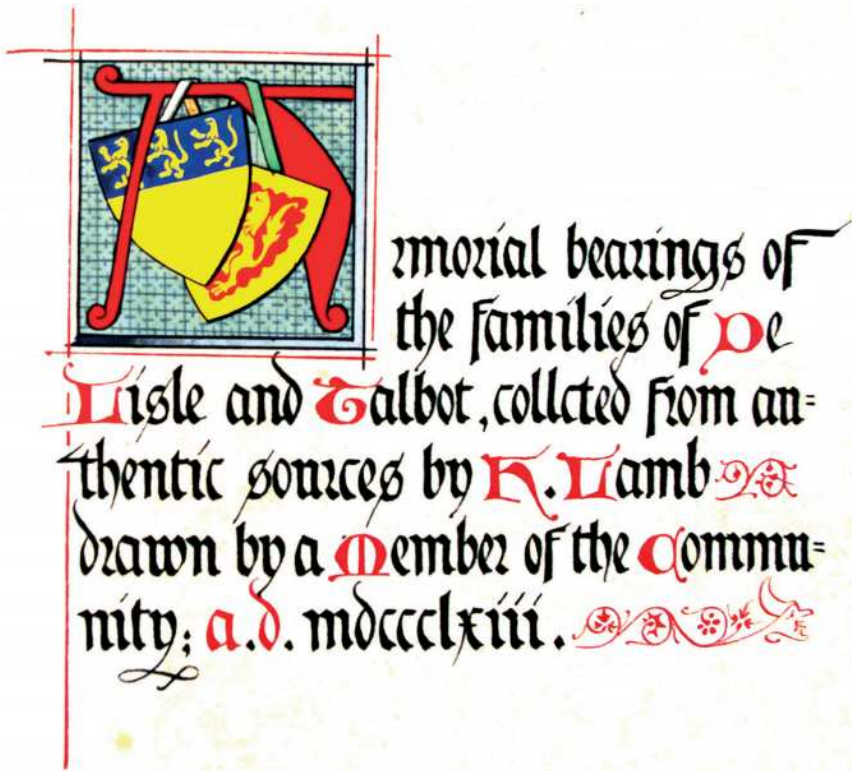 Armorial bearings of
the families of De
Lisle and Talbot, collcted from au=
thentic sources by A. Lamb
drawn by a Member of the Commu=
nity; a.d. mdccclxiii.